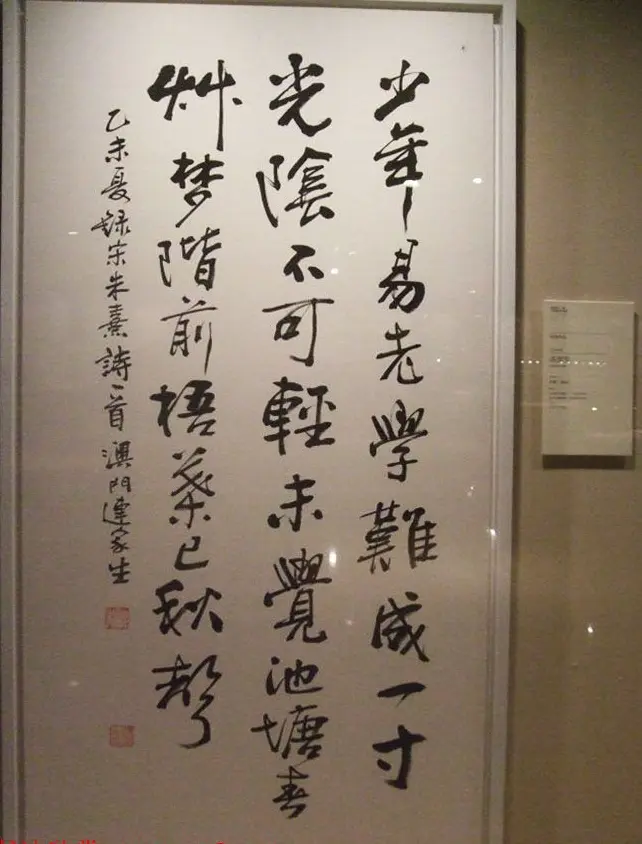 少年易老學難成一寸
光陰不可輕未覺池塘春
艸梦階前梧葉已秋聲
乙未夏録宋朱熹詩一首澳門連家生